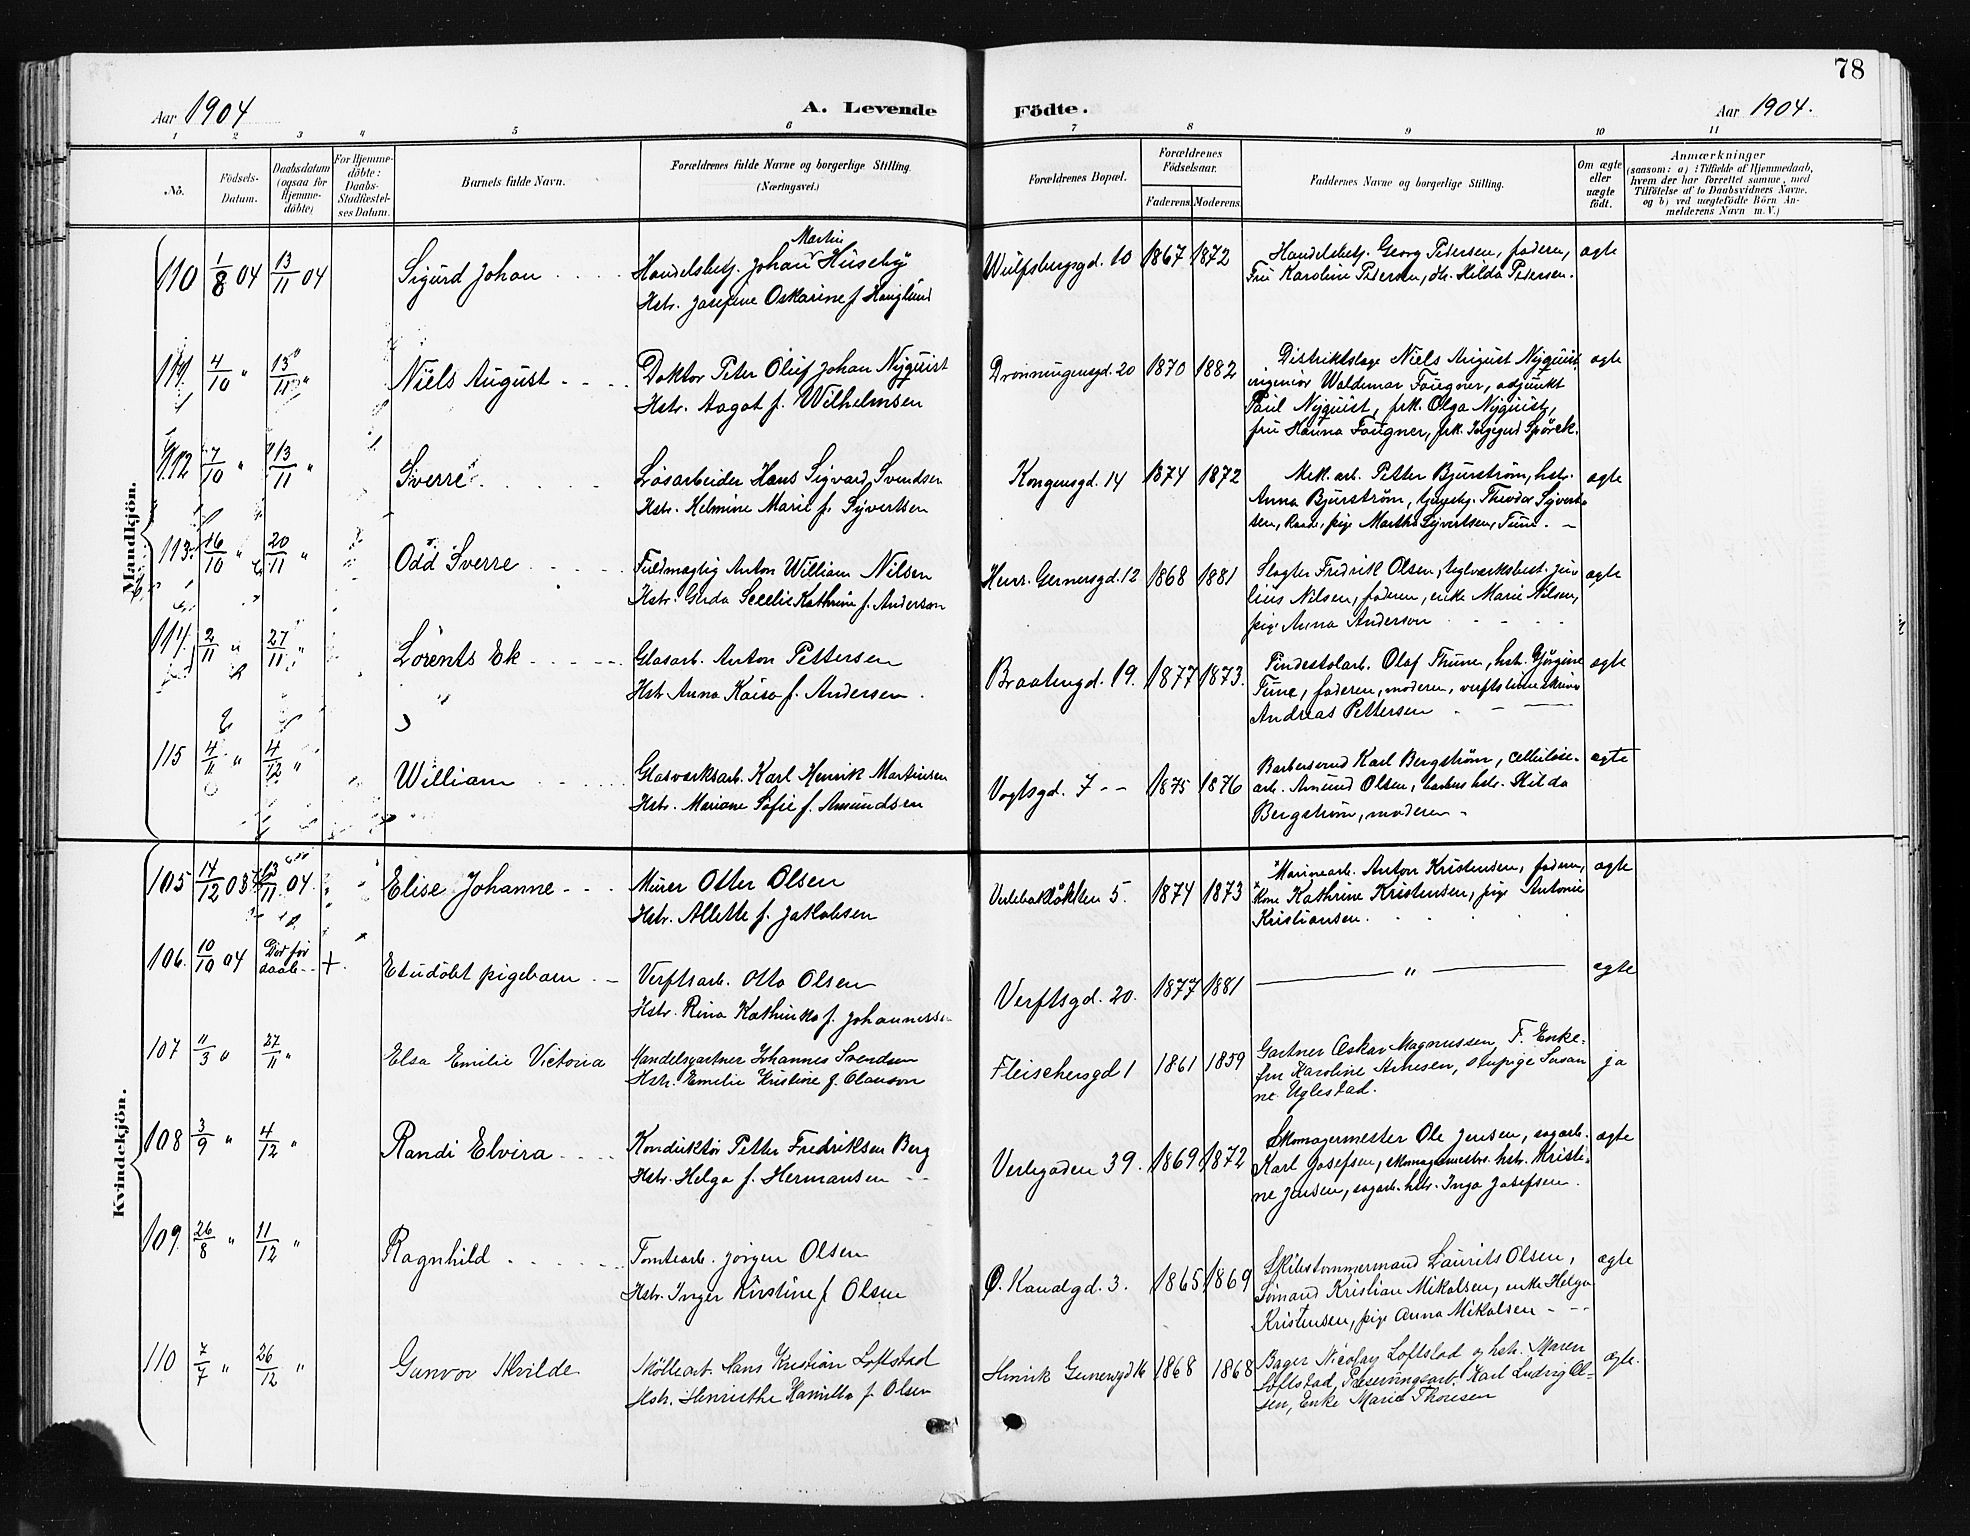 78
Aar 1904
A. Levende
Födte.
Aar 1904.
1 2 3 4 5 6 7 8 9 10 11
No.
Födsels-
Datum.
Daabsdatum
(ogsaa for
Hjemme-
döbte)
For Hjemme-
döbte:
Daabs-
Stadfæstel-
ses Datum.
Barnets fulde Navn.
Forældrenes fulde Navne og borgerlige Stilling
(Næringsvei.)
Forældrenes Bopæl.
Forældrenes
Födselsaar.
Faderens
Moderens
Faddernes Navne og borgerlige Stilling.
Om ægte
eller
uægte
födt.
Anmærkninger
(saasom: a) i Tilfælde af Hjemmedaab,
hvem der har forrettet samme, med
Tilföielse af to Daabsvidners Navne,
og b) ved uægtefödte Börn An-
melderens Navn m. V.)
Mandkjön.
110 1/8 04 13/11 04
Sigurd Johan
Martin
Handelsbetj. Johan Huseby
Hstr. Josefine Oskarine f. Hauglund
Wulfsbergsgd. 10 1867 1872
Handelsbetj. Georg Pedersen, faderen,
Fru Karoline Pedersen, frk. Hilda Pedersen.
ægte
111 4/10 " 13/11 "
Niels August
Doktor Peter Oluf Johan Nyquist
Hstr. Aagot f. Wilhelmsen
Dronningensgd. 20 1870 1882
Distriktslæge Niels August Nyquist,
ingeniør Waldemar Fougner, adjunkt
Paul Nyquist, frk. Olga Nyquist,
fru Hanna Fougner, frk. Ingegerd Spörck.
ægte
112 7/10 " 13/11 "
Sverre
Løsarbeider Hans Sigvard Svendsen
Hstr. Helmine Marie f. Syvertsen
Kongensgd. 14 1874 1872
Mek. arb. Petter Bjurström, hstr.
Anna Bjurström, Theodor Syvert-
sen, Raade, pige Martha Syvertsen, Tune.
ægte
113 16/10 " 20/11 "
Odd Sverre
Fuldmægtig Anton William Nilsen
Hstr. Gerda Secelie Kathrine f. Anderson
Henr. Gernersgd. 12 1868 1881
Slagter Fredrik Olsen, teglværksbest. Ju-
lius Nilsen, faderen, enke Marie Nilsen,
pige Anna Anderson
ægte
114. 2/11 " 27/11 "
Lorents Ek
Glasarb. Anton Pettersen
Hstr. Anna Kaisa f. Andersen
Braatengd. 19. 1877 1873.
Pindestolarb. Olaf Thune, hstr. Gjørgine
Tune, faderen, moderen, verfts
Andreas Pettersen
ægte
115 4/11 " 4/12 "
William
Glasværksarb. Karl Henrik Martinsen
Hstr. Mariane Sofie f. Amundsen
Vogtsgd. 7 1875 1876
Barbersvend Karl Bergström, cellulose-
arb. Amund Olsen, barber hstr. Hilda
Bergström, moderen
ægte
Kvindekjön.
105 14/12 03 13/11 04.
Elise Johanne
Murer Otter Olsen
Hstr. Allette f. Jakobsen
Verlebakløkken 5. 1874 1873
Marinearb. Anton Kristensen, faderen,
Kone Kathrine Kristensen, pige Antonie
Kristiansen.
ægte
106. 10/10 04 Död før
daab +
Et udöbt pigebarn
Verftsarb. Otto Olsen
Hstr. Rina Kathinka f. Johannessen
Verftsgd. 20. 1877 1881
"
ægte
107 11/3 " 27/11 "
Elsa Emilie Victoria
Handelsgartner Johannes Svendsen
Hstr. Emilie Kristine f. Olausson
Fleischersgd 1 1861 1859
Gartner Oskar Magnussen, F. Enke-
fru Karoline Arnesen, stuepige Susan
ne Uglestad.
ja
108 3/9 " 4/12 "
Randi Elvira
Konduktör Petter Fredriksen Berg
Hstr. Helga f. Hermansen
Verlegaden 39. 1869 1872
Skomagermester Ole Jensen, sagarb.
Karl Josefsen, skomagermestr. hstr. Kristi-
ne Jensen, sagarb. hstr. Inga Josefsen.
ægte
109. 26/8 " 11/12 "
Ragnhild
Tomtearb. Jørgen Olsen
Hstr. Inger Kirstine f. Olsen
Ø. Kanalgd. 3. 1865 1869
Skibstömmermand Laurits Olsen,
Sømand Kristian Mikalsen, enke Helga
Kristensen, pige Anna Mikalsen
ægte
110 7/7 " 26/12 "
Gunvor Alvilde
Møllearb. Hans Kristian Loftstad
Hstr. Henriethe Kamilla f. Olsen
Henrik Gernersgd 14 1868 1868
Bager Nicolay Loftstad og hstr. Maren
Loftstad, Karl Ludvig Ol-
sen, Enke Marie Thoresen
ægte.